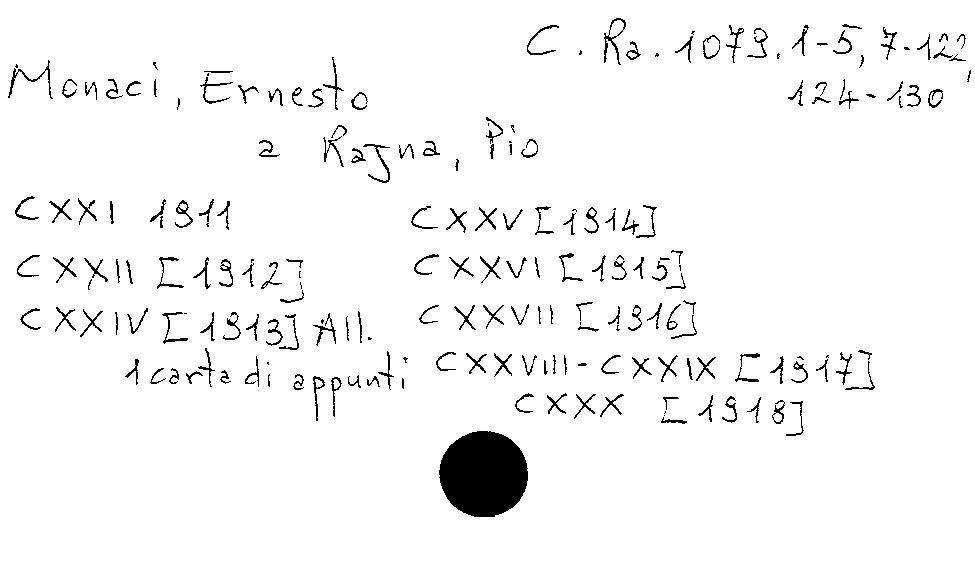 C. Ra. 1079. 1-5, 7-122,
124-130
Monaci, Ernesto
a Rajna, Pio
CXXI 1911
CXXII [1912]
CXXIV [1913] All.
1 carta di appunti
CXXV [1914]
CXXVI [1915]
CXXVII [1916]
CXXVIII - CXXIX [1917]
CXXX [1918]